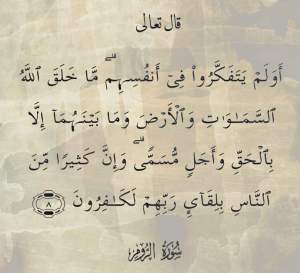 قال تعالى
أَوَلَمْ يَتَفَكَّرُوا۟ فِىٓ أَنفُسِهِم ۗ مَّا خَلَقَ ٱللَّهُ
ٱلسَّمَـٰوَٰتِ وَٱلْأَرْضَ وَمَا بَيْنَهُمَآ إِلَّا
بِٱلْحَقِّ وَأَجَلٍ مُّسَمًّى ۗ وَإِنَّ كَثِيرًا مِّنَ
ٱلنَّاسِ بِلِقَآئِ رَبِّهِمْ لَكَـٰفِرُونَ ٨
سُورَةُ الرُّومِ